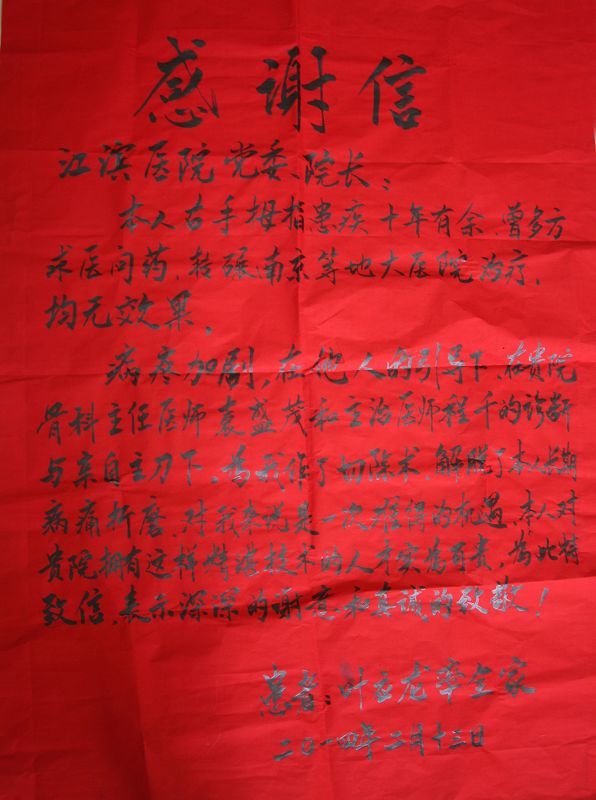 感谢信
江滨医院党委、院长：
本人右手拇指患疾十年有余，曾多方
求医问药，转碾南京等地大医院治疗，
均无效果。
病疼加剧，在他人的引导下，在贵院
骨科主任医师袁盛茂和主治医师程千的诊断
与亲自主刀下，为我作了切除术，解脱了本人长期
病痛折磨，对我来说是一次难得的机遇，本人对
贵院拥有这样精湛技术的人才实为可贵，为此特
致信，表示深深的谢意和真诚的致敬！
患者：叶 龙率全家
二〇一四年二月十三日